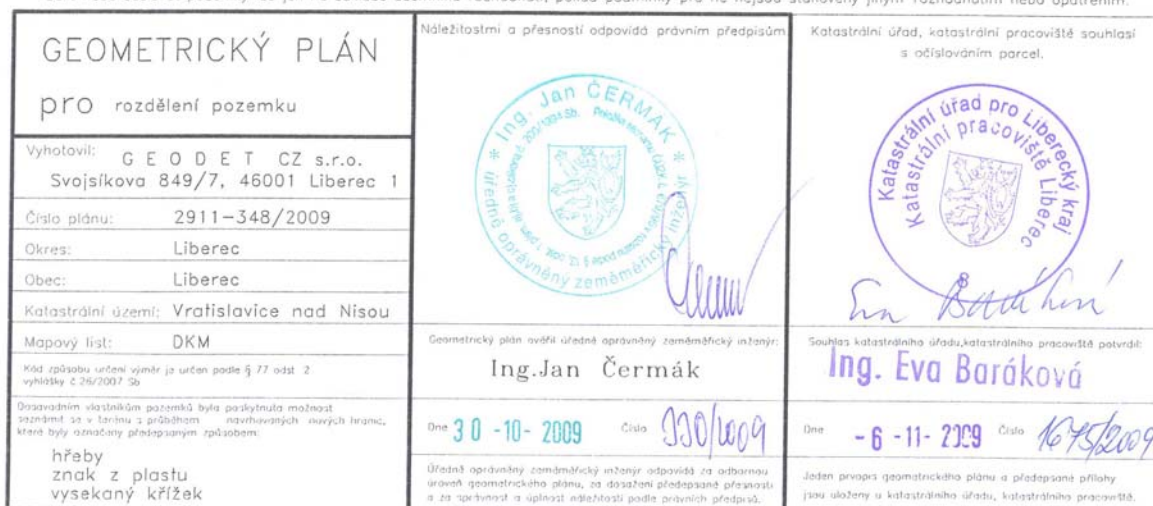 GEOMETRICKÝ PLÁN
pro rozdělení pozemku
Vyhotovil: GEODET CZ s.r.o.
Svojsíkova 849/7, 46001 Liberec 1
Číslo plánu: 2911-348/2009
Okres: Liberec
Obec: Liberec
Katastrální území: Vratislavice nad Nisou
Mapový list: DKM
Kód způsobu určení výměr je určen podle § 77 odst. 2
vyhlášky č.26/2007 Sb
Dosavadním vlastníkům pozemků byla poskytnuta možnost
seznámit se v terénu s průběhem navrhovaných nových hranic,
které byly označeny předepsaným způsobem:
hřeby
znak z plastu
vysekaný křížek
Náležitostmi a přesností odpovídá právním předpisům
Ing. Jan ČERMÁK
úředně oprávněný zeměměřický inženýr
Geometrický plán ověřil úředně oprávněný zeměměřický inženýr:
Ing.Jan Čermák
Dne 30 -10- 2009 Číslo 330/2009
Úředně oprávněný zeměměřický inženýr odpovídá za odbornou
úroveň geometrického plánu, za dosažení předepsané přesnosti
a za správnost a úplnost náležitostí podle právních předpisů.
Katastrální úřad, katastrální pracoviště souhlasí
s očíslováním parcel.
Katastrální úřad pro Liberecký kraj
Katastrální pracoviště Liberec
8
Souhlas katastrálního úřadu,katastrálního pracoviště potvrdil:
Ing. Eva Baráková
Dne -6 -11- 2009 Číslo 1675/2009
Jeden prvopis geometrického plánu a předepsané přílohy
jsou uloženy u katastrálního úřadu, katastrálního pracoviště.